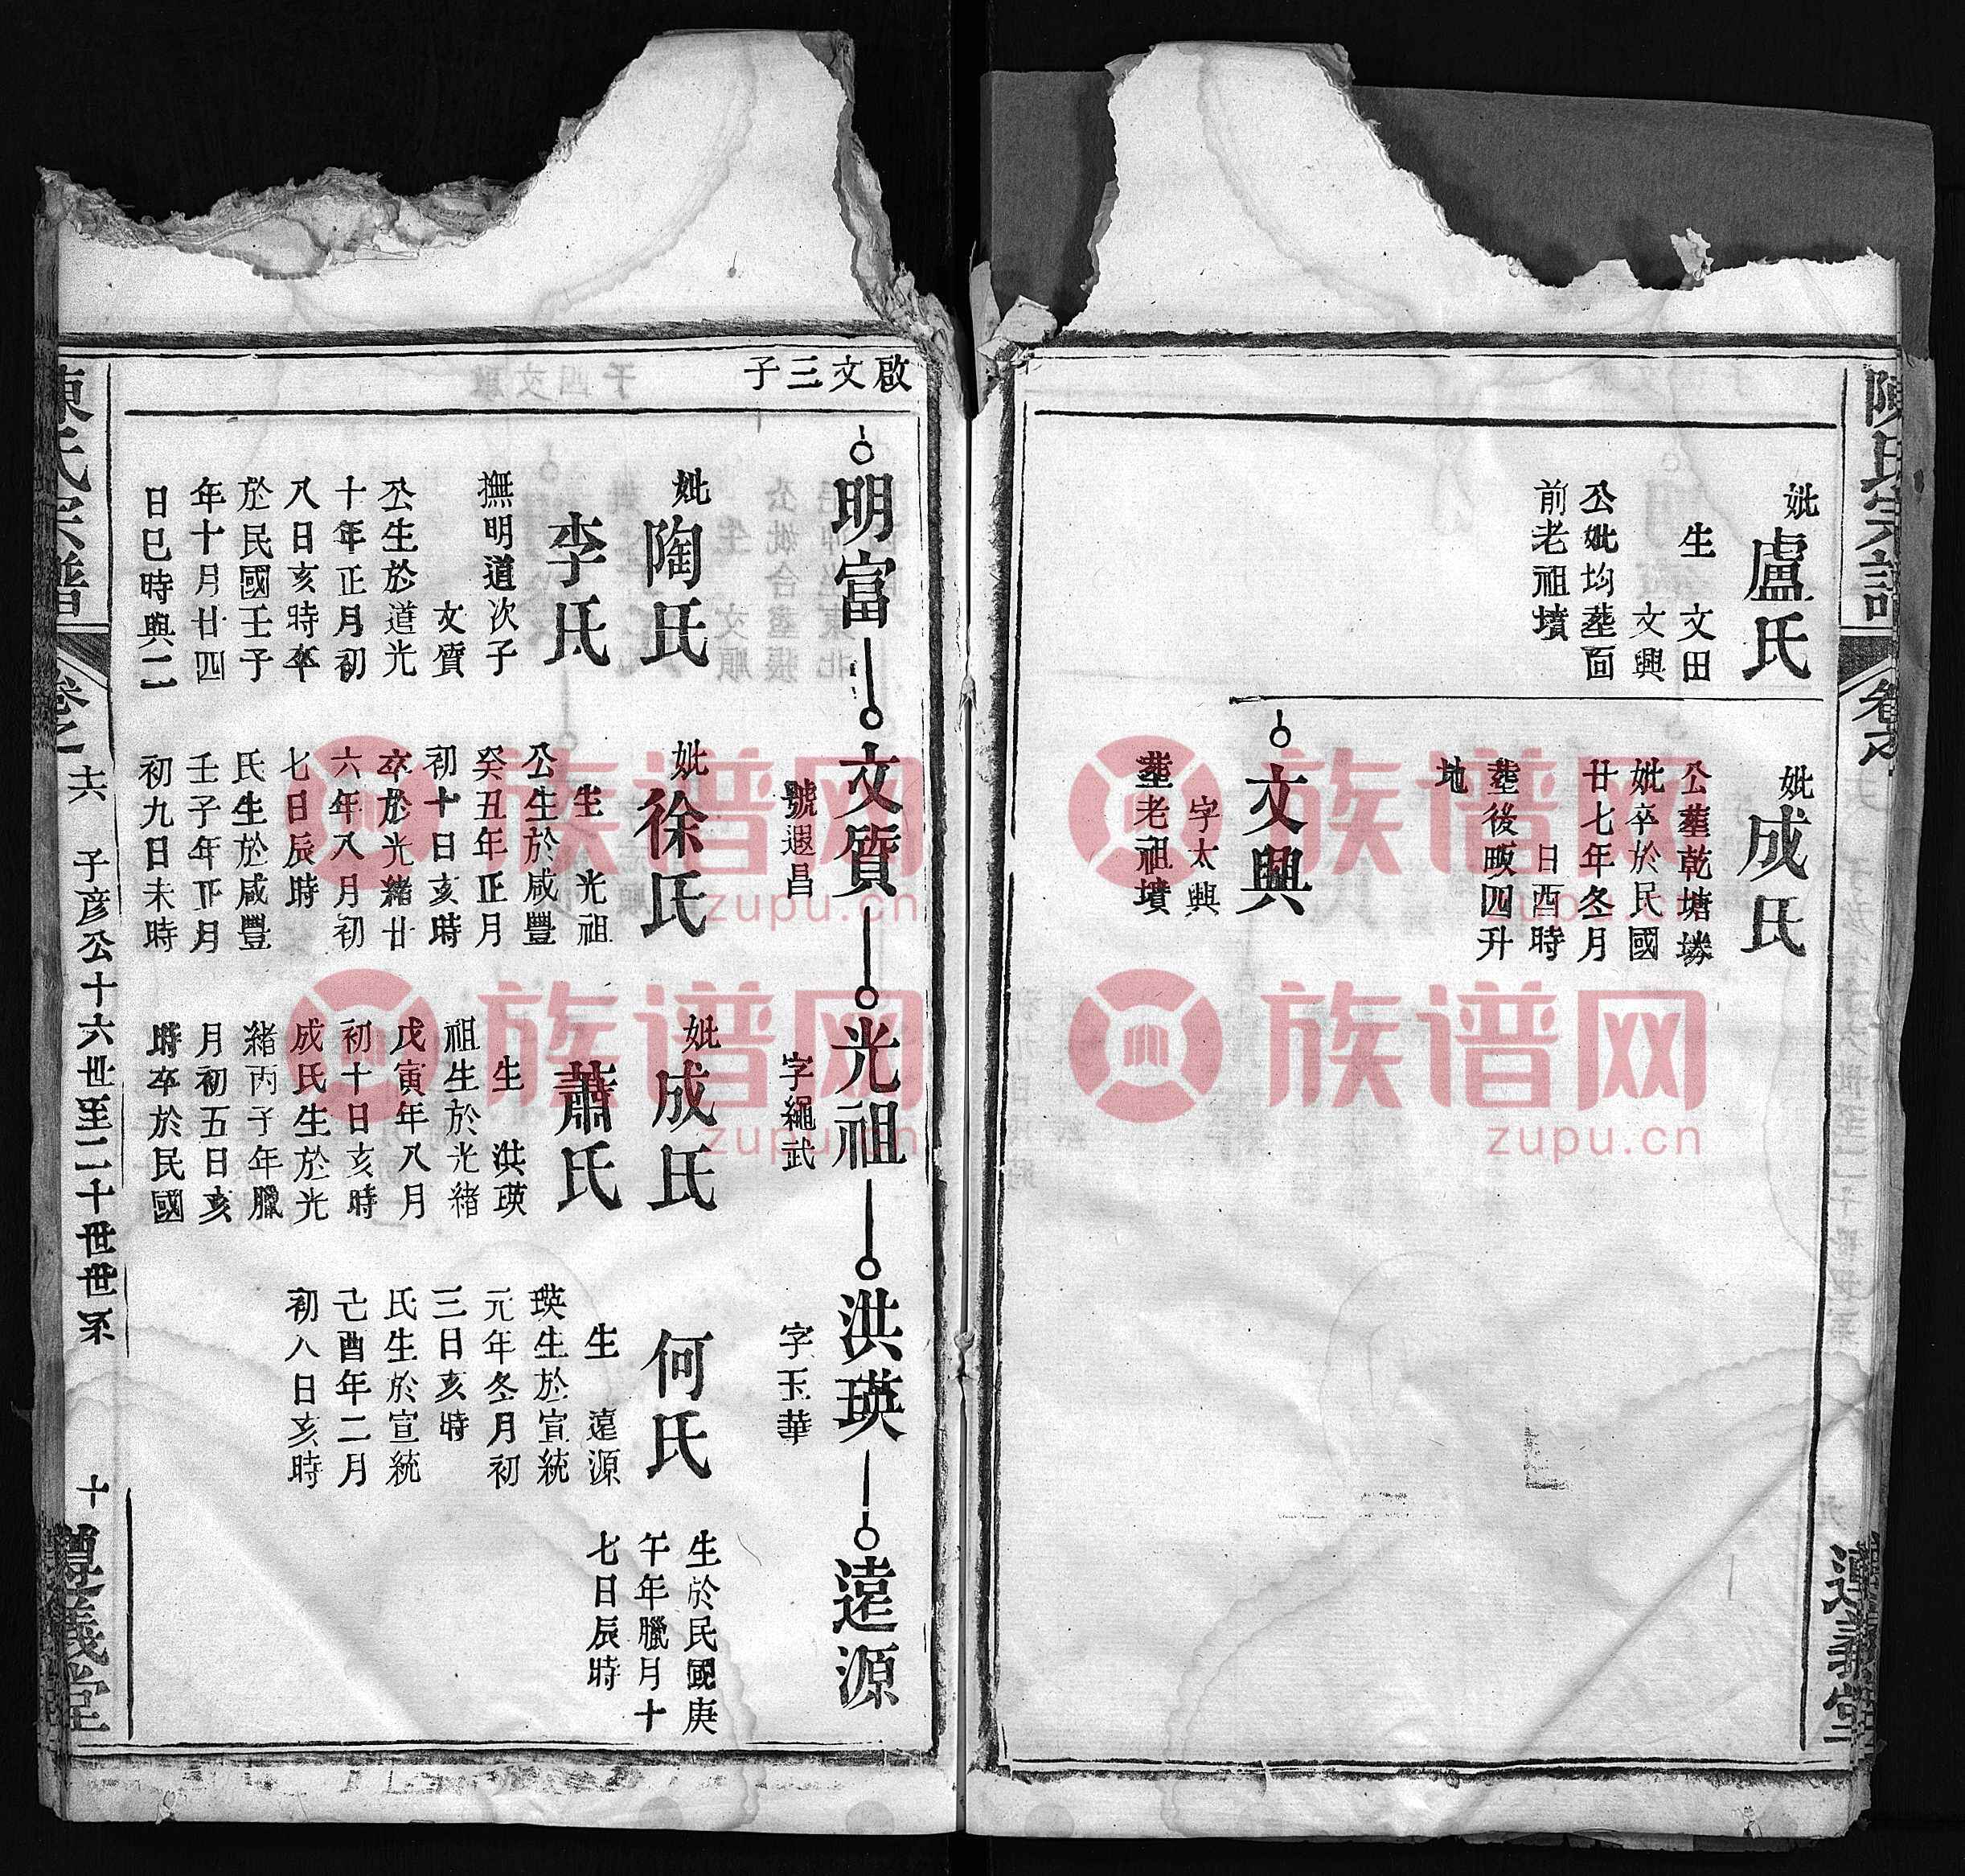 陳氏宗譜
卷之
遵義堂
妣盧氏
生 文田
文興
公妣均塟面
前老祖墳
妣成氏
公塟乾塘塝
妣卒於民國
廿七年冬月
日酉時
塟後畈四升
地
文興
字太興
塟老祖墳
啟文三子
明富
妣陶氏
李氏
撫明道次子
文質
公生於道光
十年正月初
八日亥時卒
於民國壬子
年十月廿四
日巳時與二
文質
號遐昌
妣徐氏
生 光祖
公生於咸豐
癸丑年正月
初十日亥時
卒於光緒廿
六年八月初
七日辰時
氏生於咸豐
壬子年正月
初九日未時
光祖
字繩武
妣成氏
蕭氏
生 洪瑛
祖生於光緒
戊寅年八月
初十日亥時
成氏生於光
緒丙子年臘
月初五日亥
時卒於民國
洪瑛
字玉華
何氏
生 遠源
瑛生於宣統
元年冬月初
三日亥時
氏生於宣統
己酉年二月
初八日亥時
遠源
生於民國庚
午年臘月十
七日辰時
陳氏宗譜
卷之
十六
子彦公十六世至二十世世系
十
遵義堂
族谱网
zupu.cn
族谱网
zupu.cn
族谱网
zupu.cn
族谱网
zupu.cn